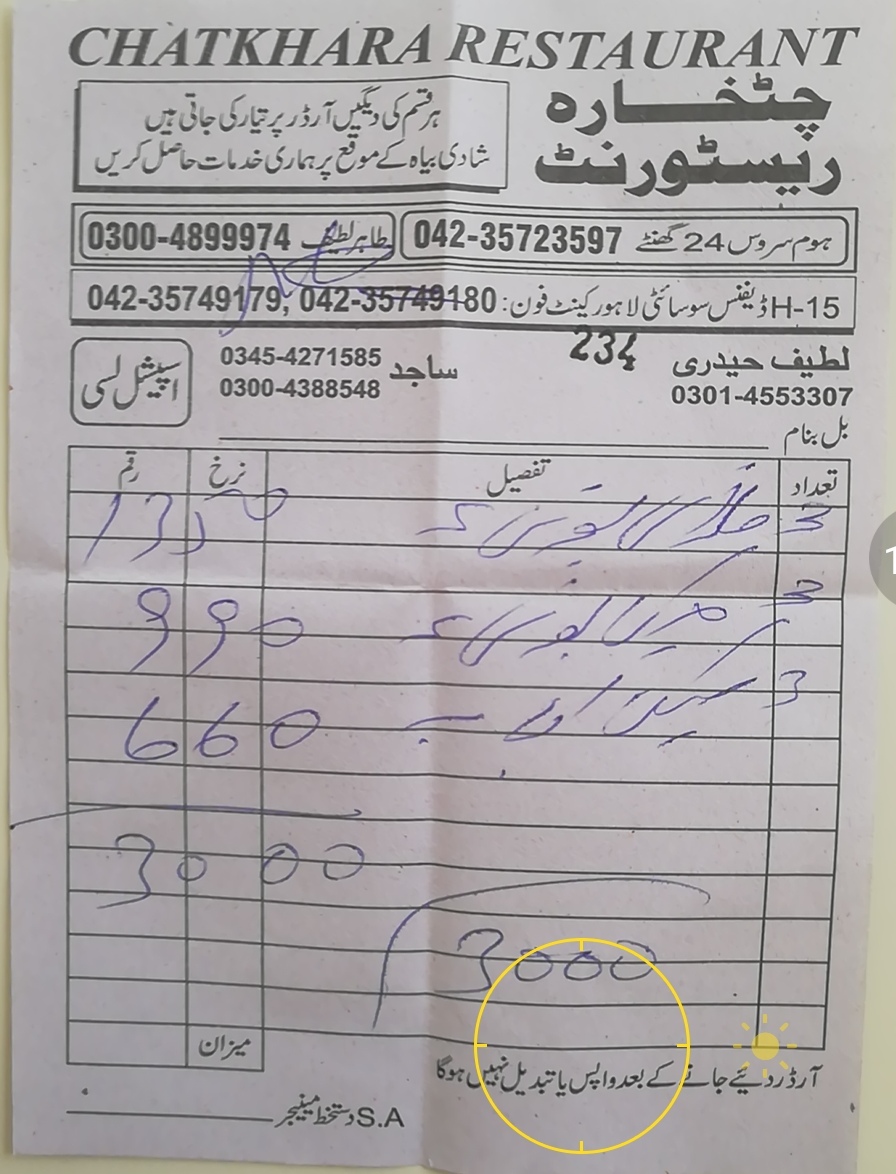 CHATKHARA RESTAURANT
چٹخارہ
ریسٹورنٹ
ہر قسم کی دیگیں آرڈر پر تیار کی جاتی ہیں
شادی بیاہ کے موقع پر ہماری خدمات حاصل کریں
ہوم سروس 24 گھنٹے 042-35723597
طاہر لطیف 0300-4899974
H-15 ڈیفنس سوسائٹی لاہور کینٹ فون: 042-35749179, 042-35749180
234
لطیف حیدری
0301-4553307
ساجد 0345-4271585
0300-4388548
اسپیشل لسی
بل بنام
تعداد تفصیل نرخ رقم
3 1350
3 990
3 660
3000
3000
میزان
آرڈر دئیے جانے کے بعد واپس یا تبدیل نہیں ہوگا
S.A دستخط مینیجر
1